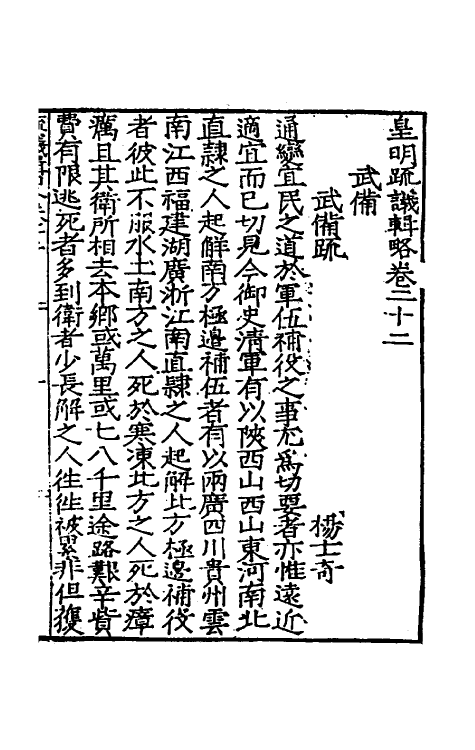 皇明疏議輯略卷二十二
武備
武備疏
楊士奇
通變宜民之道於軍伍補役之事尤為切要者亦惟遠近
適宜而已切見今御史清軍有以陝西山西山東河南北
直隷之人起解南方極邊補伍者有以兩廣四川貴州雲
南江西福建湖廣浙江南直隷之人起解北方極邊補役
者彼此不服水土南方之人死於寒凍北方之人死於瘴
癘且其衛所相去本鄉或萬里或七八千里途路艱辛貲
費有限逃死者多到衛者少長解之人徃徃被累非但獲